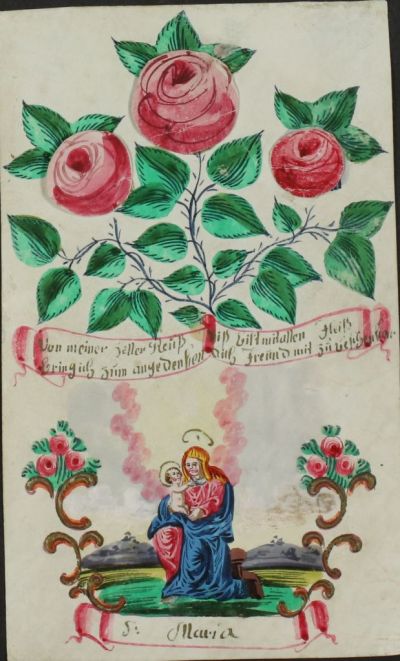 Von meiner Zeller Reiß diß bilt mit allen Fleiß
bring ich zum angedenken dich Freind mit zu beschenken
S: Maria